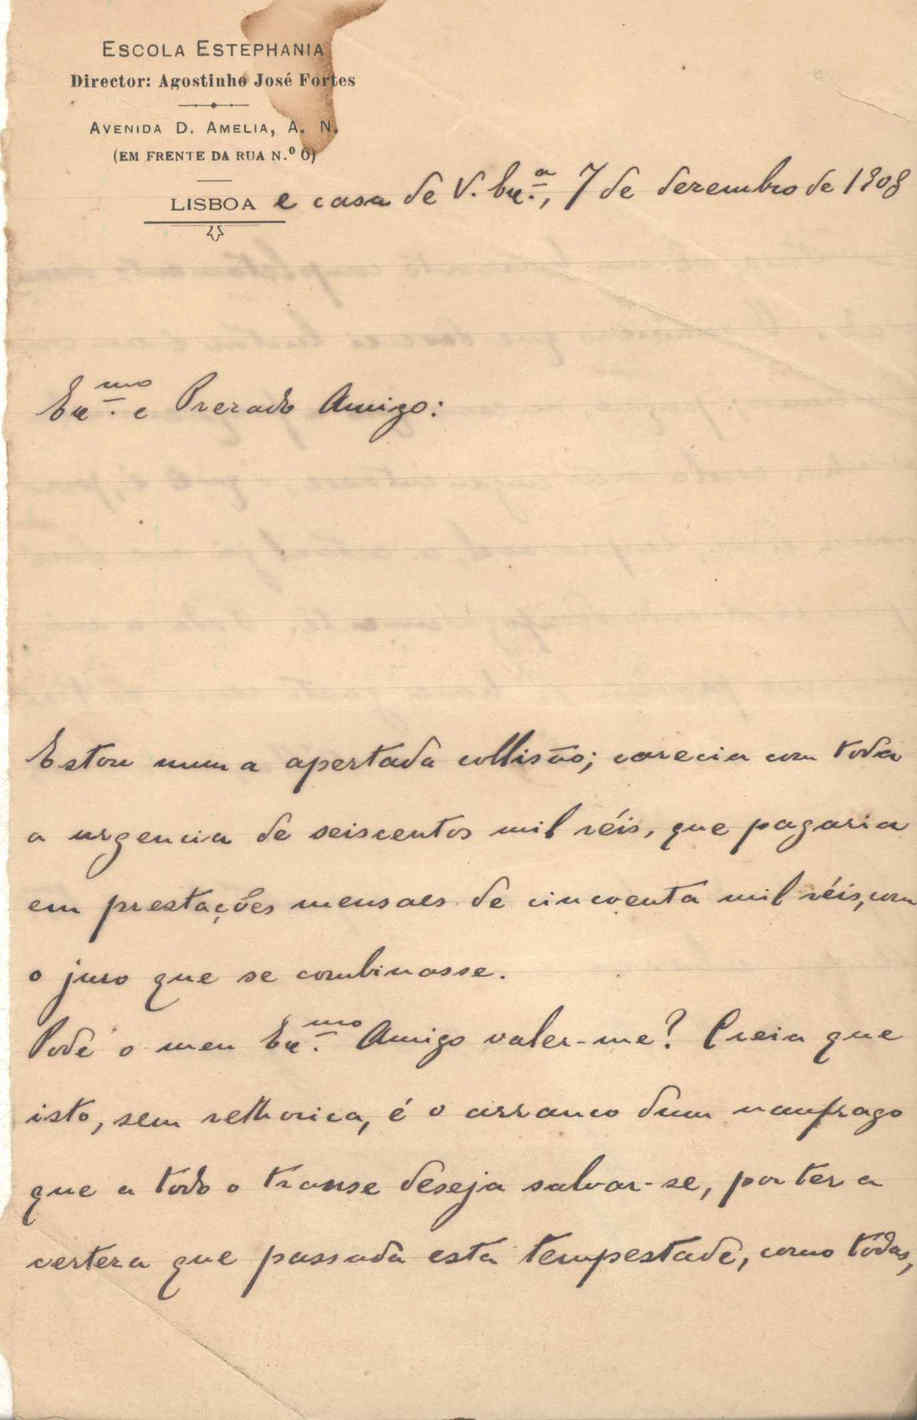 ESCOLA ESTEPHANIA
Director: Agostinho José Fortes
AVENIDA D. AMELIA, A. N.
(EM FRENTE DA RUA N.º 6)
LISBOA e casa de V. Ex.ª, 7 de dezembro de 1908
Ex.mo e Prezado Amigo:
Estou numa apertada collisão; carecia com toda
a urgencia de seiscentos mil réis, que pagaria
em prestações mensaes de cincoenta mil réis, com
o juro que se combinasse.
Pode o meu Ex.mo Amigo valer-me? Creia que
isto, sem rethorica, é o arranco dum naufrago
que a todo o transe deseja salvar-se, por ter a
certeza que passada esta tempestade, como tôdas,